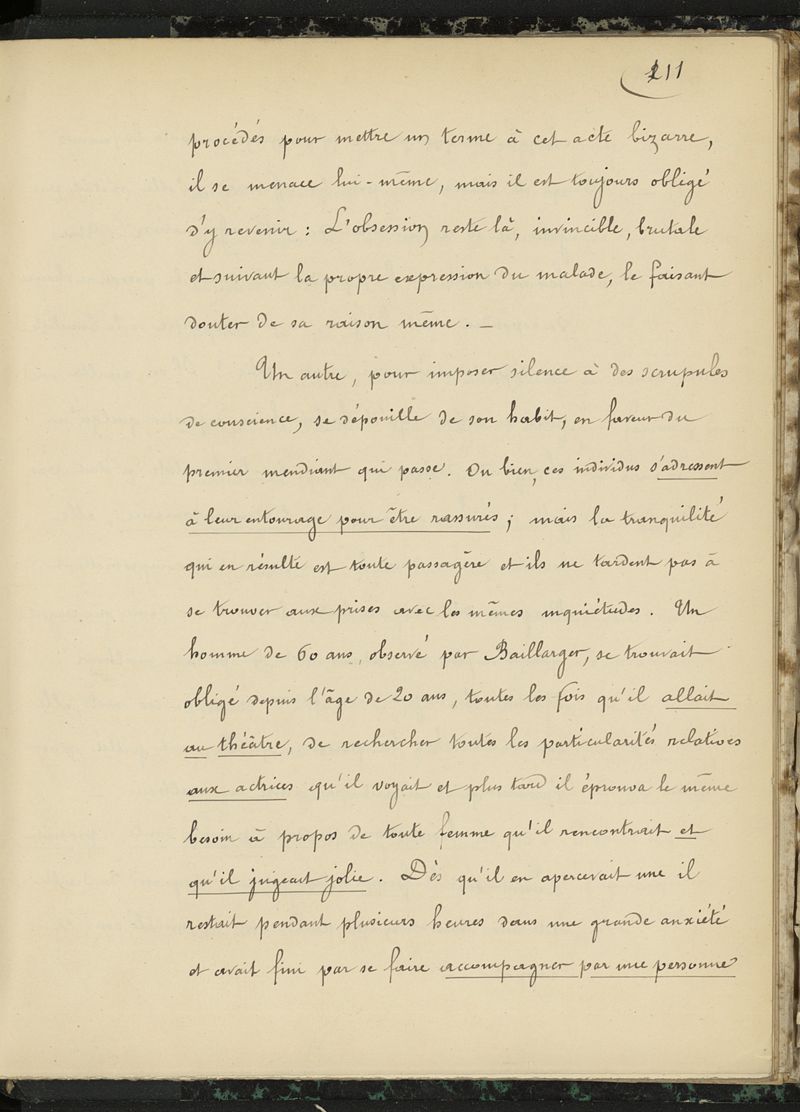 211
procédés pour mettre un terme à cet acte bizarre,
il se menace lui-même, mais il est toujours obligé
d'y revenir : L'obsession reste là, invincible, brutale
et suivant la propre expression du malade, le faisant
douter de sa raison même. —
Un autre, pour imposer silence à des scrupules
de conscience, se dépouille de son habit, en faveur du
premier mendiant qui passe. Ou bien, ces individus s'adressent
à leur entourage pour être rassurés ; mais la tranquilité
qui en résulte est toute passagère et ils ne tardent pas à
se trouver aux prises avec les mêmes inquiétudes. Un
homme de 60 ans, observé par Baillarger, se trouvait
obligé depuis l'âge de 20 ans, toutes les fois qu'il allait
au théâtre, de rechercher toutes les particularités relatives
aux actrices qu'il voyait et plus tard il éprouva le même
besoin à propos de toute femme qu'il rencontrait et
qu'il jugeait jolie. Dès qu'il en apercevait une il
restait pendant plusieurs heures dans une grande anxiété
et avait fini par se faire accompagner par une personne